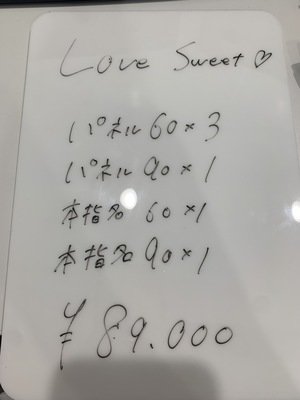 Love Sweet♡
パネル 60×3
パネル 90×1
本指名 60×1
本指名 90×1
¥89.000